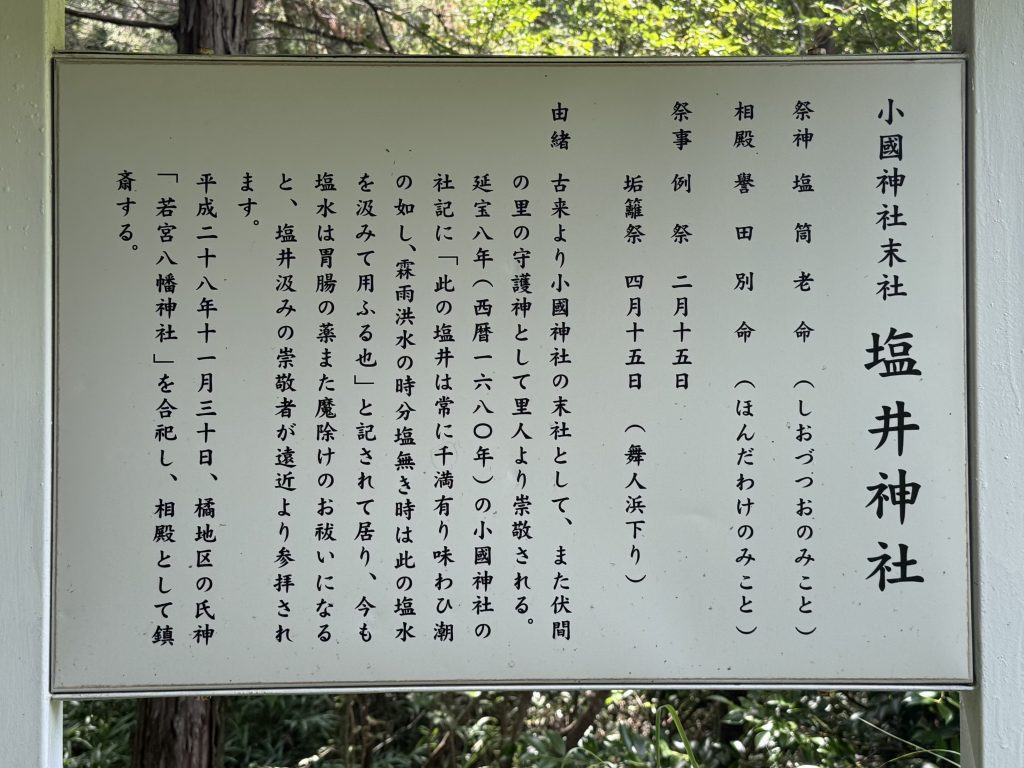 小國神社末社 塩井神社
祭神 塩筒老命(しおづつおのみこと)
相殿 譽田別命(ほんだわけのみこと)
祭事 例祭 二月十五日
垢籬祭 四月十五日(舞人浜下り)
由緒 古来より小國神社の末社として、また伏間
の里の守護神として里人より崇敬される。
延宝八年(西暦一六八〇年)の小國神社の
社記に「此の塩井は常に干満有り味わひ潮
の如し、霖雨洪水の時分塩無き時は此の塩水
を汲みて用ふる也」と記されて居り、今も
塩水は胃腸の薬また魔除けのお祓いになる
と、塩井汲みの崇敬者が遠近より参拝され
ます。
平成二十八年十一月三十日、橘地区の氏神
「若宮八幡神社」を合祀し、相殿として鎮
斎する。